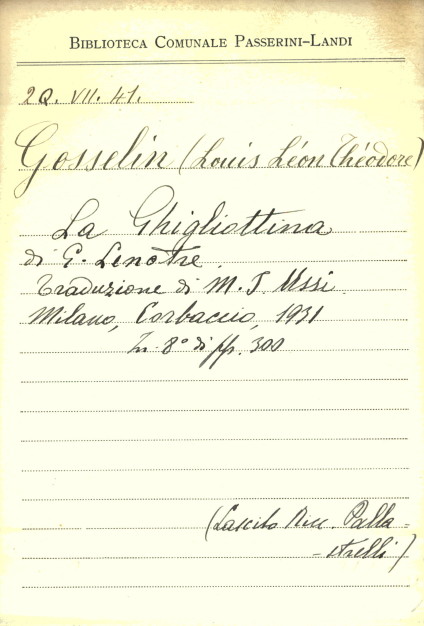 BIBLIOTECA COMUNALE PASSERINI-LANDI
2Q. VII. 41.
Gosselin (Louis Léon Théodore)
La Ghigliottina
di G. Lenotre
Traduzione di M. J. Ussi
Milano, Corbaccio, 1931
In 8° di pp. 300
(Lascito Ricc. Palla-
-strelli)